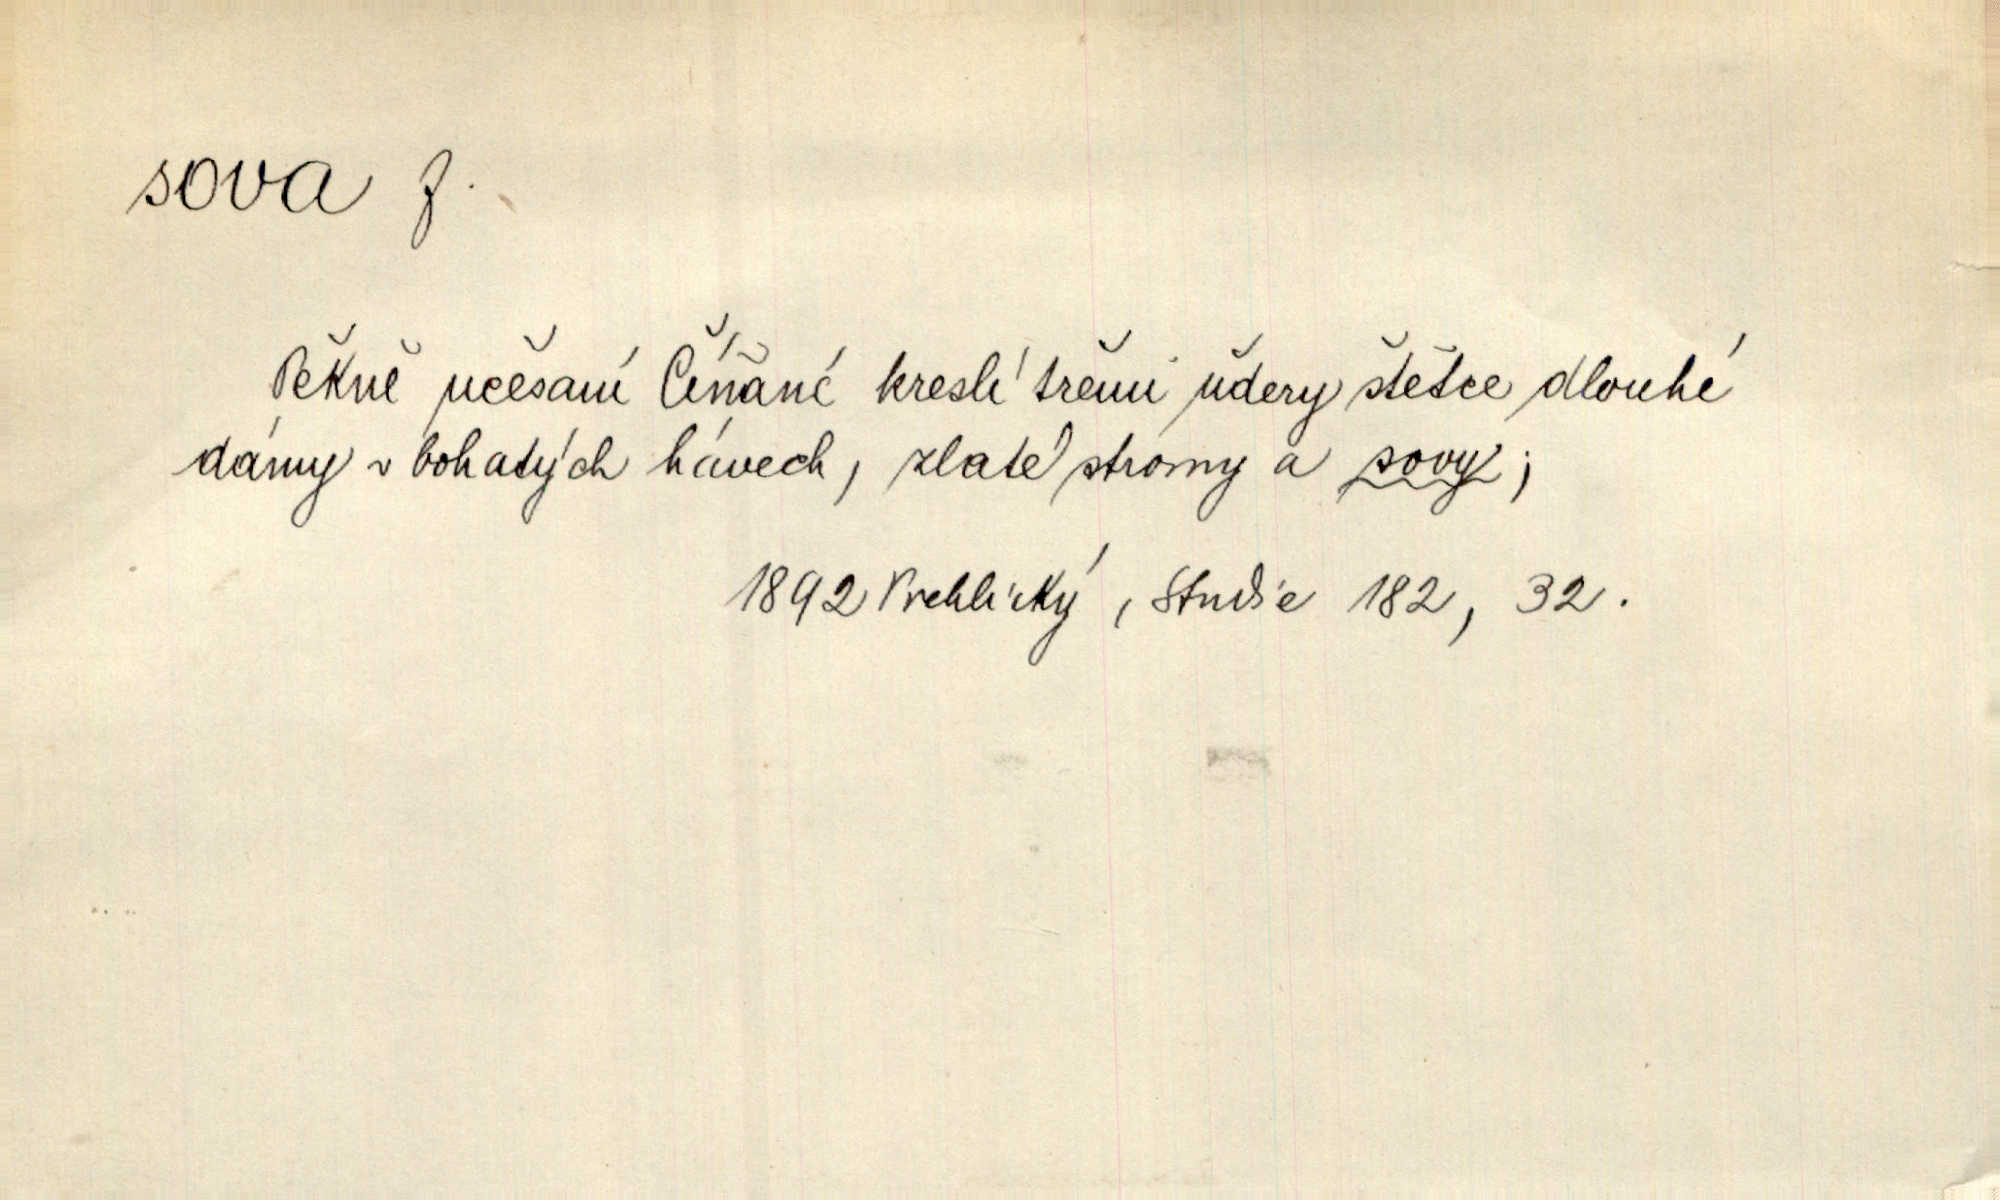 sova f.
Pěkně učesaní Číňané kreslí třemi údery štětce dlouhé
dámy v bohatých hávech, zlaté stromy a sovy;
1892 Vrchlický, Studie 182, 32.